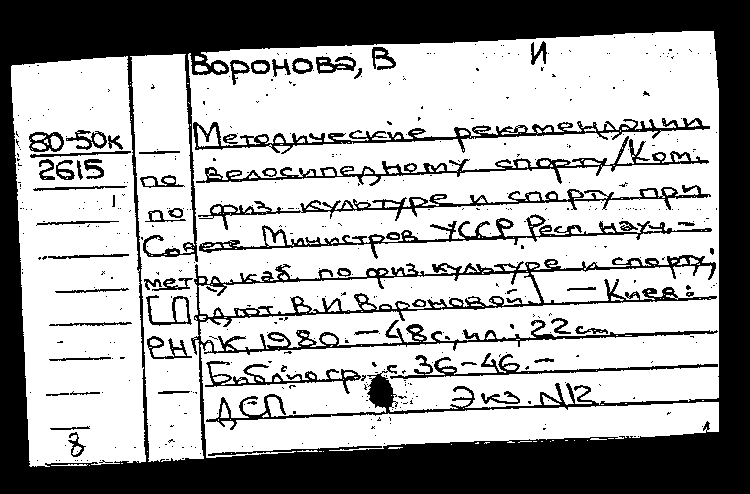 Воронова, В И
80-50к
2615
Методические рекомендации
по велосипедному спорту/Ком.
по физ. культуре и спорту при
Совете Министров УССР, Респ. науч.-
метод. каб. по физ. культуре и спорту;
[Подгот. В.И. Вороновой]. — Киев:
РНМК, 1980. — 48 с., ил.; 22 см.
Библиогр.: с. 36-46. —
ДСП. Экз. N12.
8